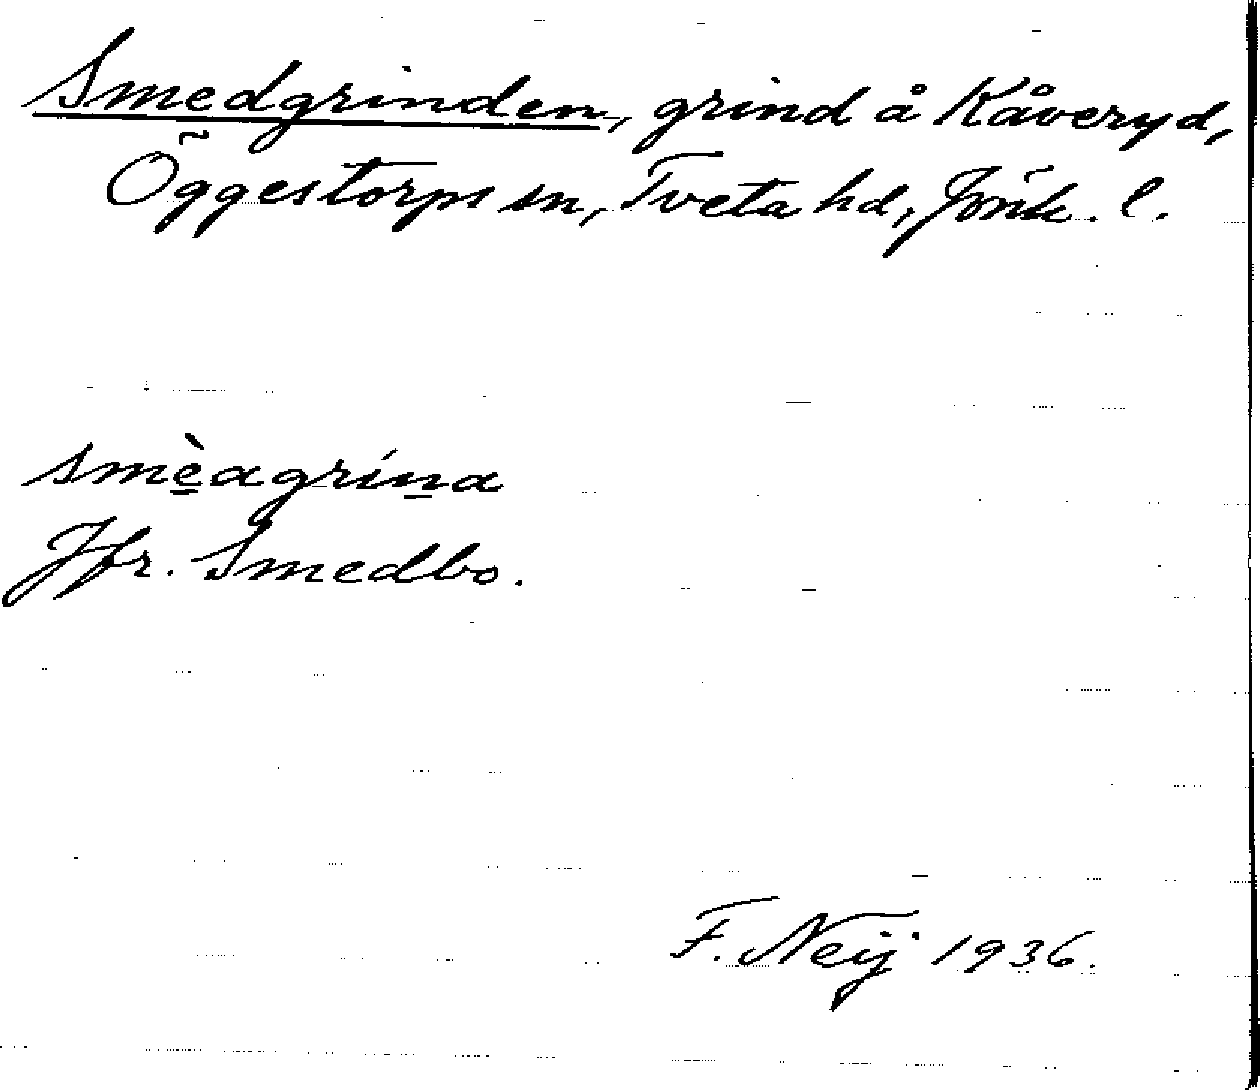 Smedgrinden, grind å Kåveryd,
Öggestorps sn, Tveta hd, Jönk. l.
smè̲agrin̲a
Jfr. Smedbo.
F. Neij 1936.